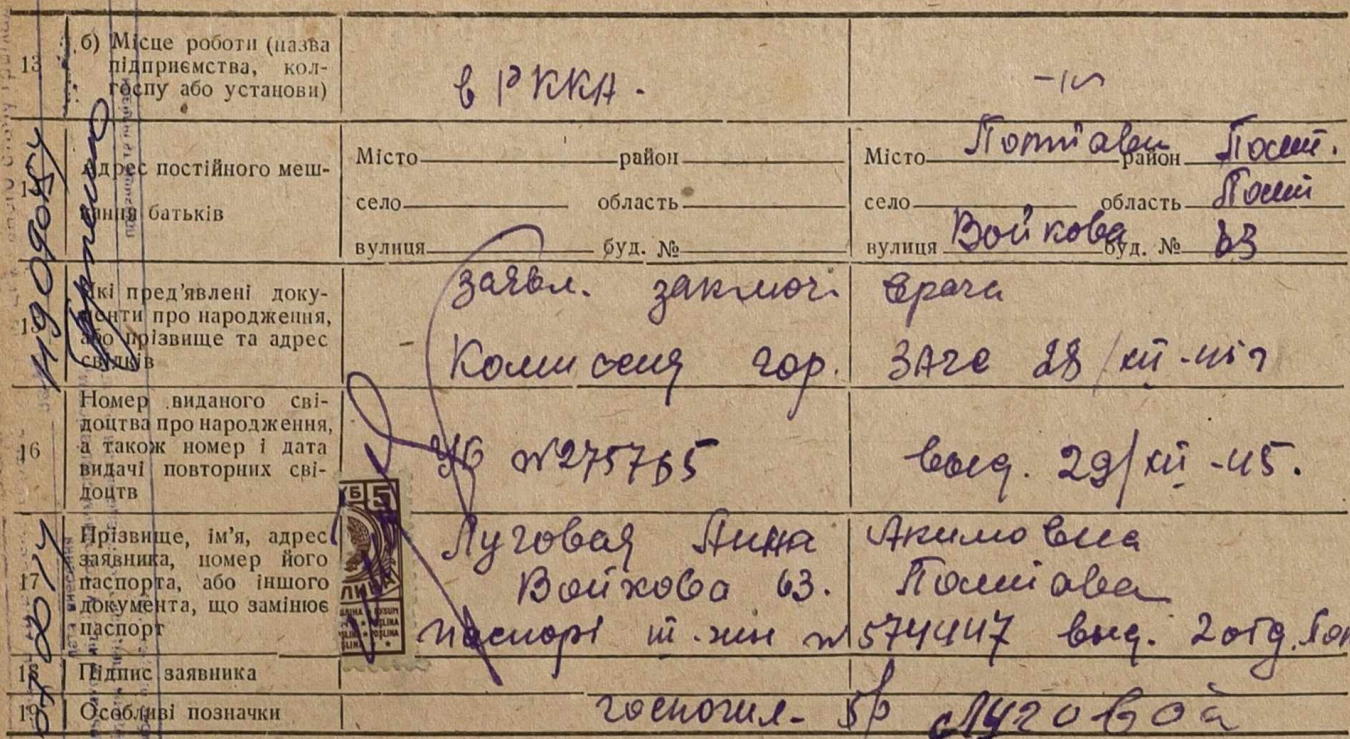 13 б) Місце роботи (назва
підприємства, кол-
госпу або установи)
в РККА.
Адрес постійного меш-
кання батьків
Місто район
село область
вулиця буд. №
Місто Полтава район Полт.
село область Полт
вулиця Войкова буд. № 63
15 Які пред'явлені доку-
менти про народження,
або прізвище та адрес
свідків
заявл. заключ. врача
Комиссия гор. ЗАГС 28/XII-45г
16 Номер виданого сві-
доцтва про народження,
а також номер і дата
видачі повторних сві-
доцтв
УБ №275765 выд. 29/XII-45.
17 Прізвище, ім'я, адрес
заявника, номер його
паспорта, або іншого
документа, що замінює
паспорт
Луговая Анна Акимовна
Войкова 63. Полтава
паспорт № 574447 выд. 2 отд. Пол
УБ 5
18 Підпис заявника
19 Особливі позначки
госпошл. 5р Луговой